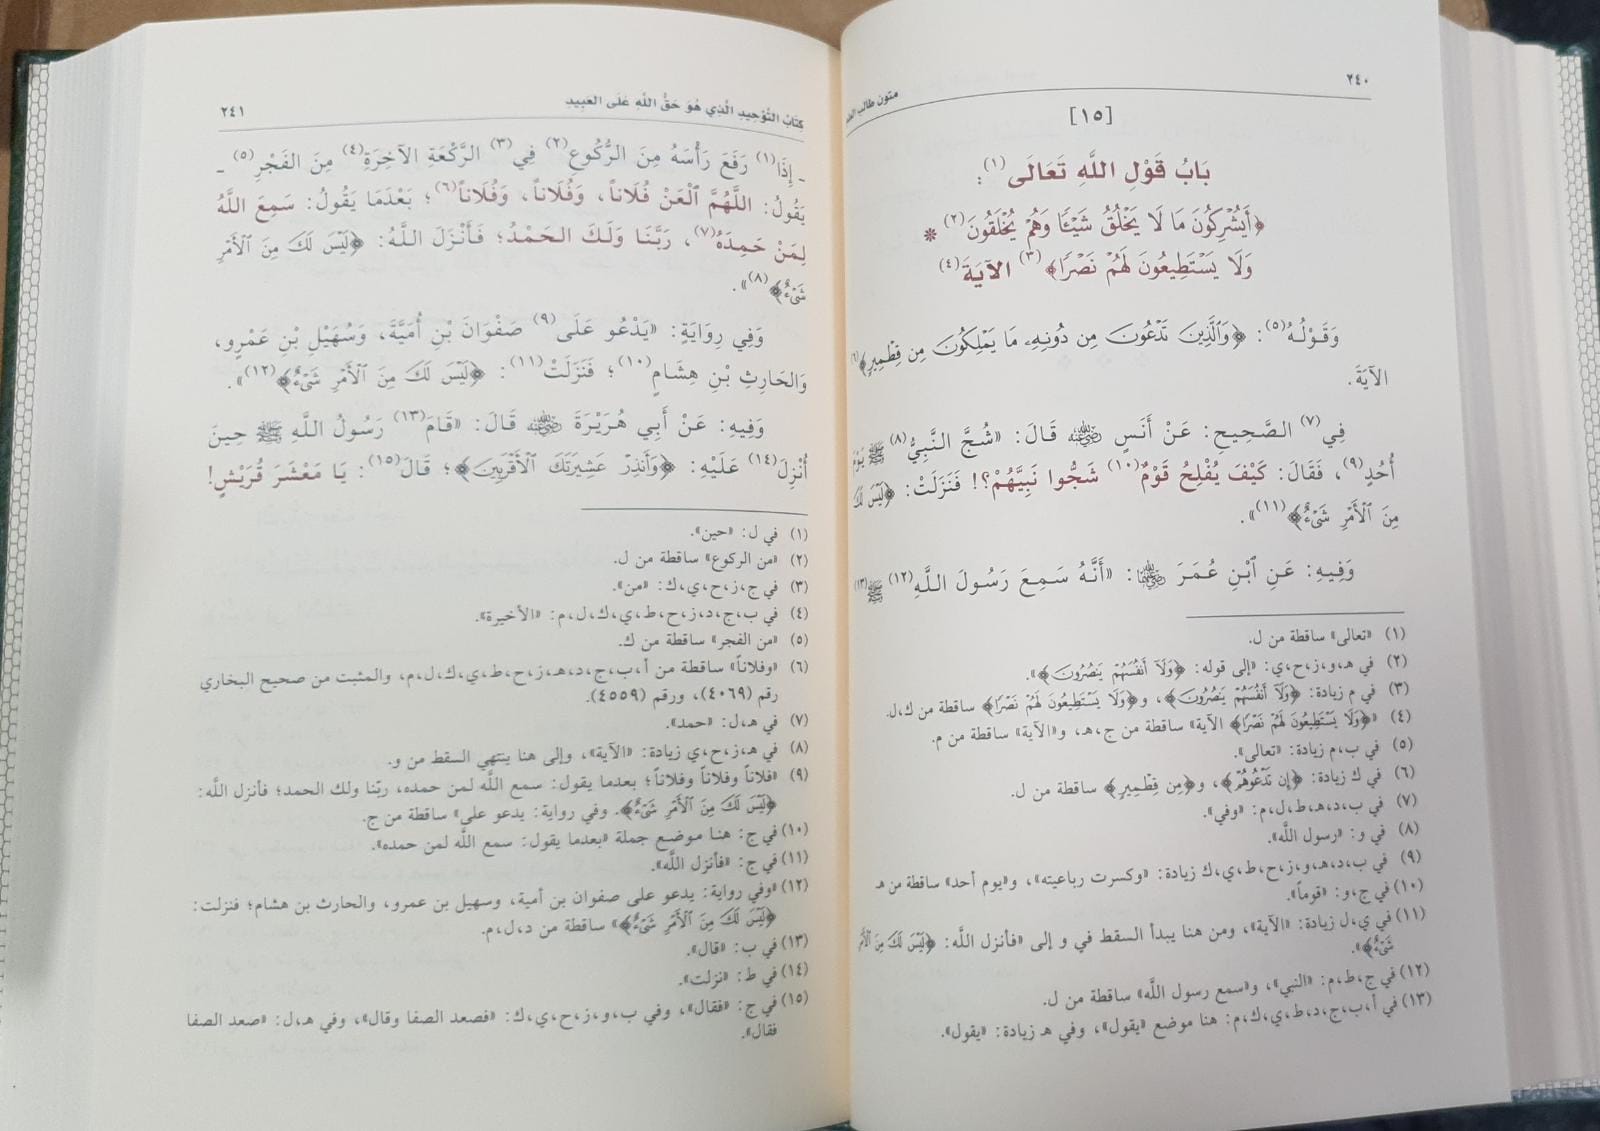 متون طالب العلم ٢٤٠
[١٥]
بَابُ قَوْلِ اللَّهِ تَعَالَى(١):
﴿أَيُشْرِكُونَ مَا لَا يَخْلُقُ شَيْئًا وَهُمْ يُخْلَقُونَ(٢) *
وَلَا يَسْتَطِيعُونَ لَهُمْ نَصْرًا﴾(٣) الآيَةَ(٤)
وَقَوْلُهُ(٥): ﴿وَالَّذِينَ تَدْعُونَ مِن دُونِهِ مَا يَمْلِكُونَ مِن قِطْمِيرٍ﴾(٦)
الآيَةَ.
فِي(٧) الصَّحِيحِ: عَنْ أَنَسٍ رضي الله عنه قَالَ: «شُجَّ النَّبِيُّ(٨) ﷺ يَوْمَ
أُحُدٍ(٩)، فَقَالَ: كَيْفَ يُفْلِحُ قَوْمٌ(١٠) شَجُّوا نَبِيَّهُمْ؟! فَنَزَلَتْ: ﴿لَيْسَ لَكَ
مِنَ ٱلْأَمْرِ شَيْءٌ﴾(١١)».
وَفِيهِ: عَنِ ٱبْنِ عُمَرَ رضي الله عنهما: «أَنَّهُ سَمِعَ رَسُولَ اللَّهِ(١٢) ﷺ(١٣)
(١) «تعالى» ساقطة من ل.
(٢) في هـ،و،ز،ح،ي: «إلى قوله: ﴿وَلَآ أَنفُسَهُمْ يَنصُرُونَ﴾».
(٣) في م زيادة: ﴿وَلَآ أَنفُسَهُمْ يَنصُرُونَ﴾، و﴿وَلَا يَسْتَطِيعُونَ لَهُمْ نَصْرًا﴾ ساقطة من ك،ل.
(٤) «﴿وَلَا يَسْتَطِيعُونَ لَهُمْ نَصْرًا﴾ الآية» ساقطة من ج،هـ، و«الآية» ساقطة من م.
(٥) في ب،م زيادة: «تعالى».
(٦) في ك زيادة: ﴿إِن تَدْعُوهُمْ﴾، و﴿مِن قِطْمِيرٍ﴾ ساقطة من ل.
(٧) في ب،د،هـ،ط،ل،م: «وفي».
(٨) في و: «رسول اللَّه».
(٩) في ب،د،هـ،و،ز،ح،ط،ي،ك زيادة: «وكسرت رباعيته»، و«يوم أحد» ساقطة من هـ
(١٠) في ج،و: «قوماً».
(١١) في ي،ل زيادة: «الآية»، ومن هنا يبدأ السقط في و إلى «فأنزل اللَّه: ﴿لَيْسَ لَكَ مِنَ ٱلْأَمْرِ
شَيْءٌ﴾».
(١٢) في ج،ط،م: «النبي»، و«سمع رسول اللَّه» ساقطة من ل.
(١٣) في أ،ب،ج،د،ط،ي،ك،م: هنا موضع «يقول»، وفي هـ زيادة: «يقول».
كِتَابُ التَّوْحِيدِ الَّذِي هُوَ حَقُّ اللَّهِ عَلَى العَبِيدِ ٢٤١
ـ إِذَا(١) رَفَعَ رَأْسَهُ مِنَ الرُّكُوعِ(٢) فِي(٣) الرَّكْعَةِ الآخِرَةِ(٤) مِنَ الفَجْرِ(٥) ـ
يَقُولُ: اللَّهُمَّ ٱلْعَنْ فُلَاناً، وَفُلَاناً، وَفُلَاناً(٦)؛ بَعْدَمَا يَقُولُ: سَمِعَ اللَّهُ
لِمَنْ حَمِدَهُ(٧)، رَبَّنَا وَلَكَ الحَمْدُ؛ فَأَنْزَلَ اللَّهُ: ﴿لَيْسَ لَكَ مِنَ ٱلْأَمْرِ
شَيْءٌ﴾(٨)».
وَفِي رِوَايَةٍ: «يَدْعُو عَلَى(٩) صَفْوَانَ بْنِ أُمَيَّةَ، وَسُهَيْلِ بْنِ عَمْرٍو،
وَالحَارِثِ بْنِ هِشَامٍ(١٠)؛ فَنَزَلَتْ(١١): ﴿لَيْسَ لَكَ مِنَ ٱلْأَمْرِ شَيْءٌ﴾(١٢)».
وَفِيهِ: عَنْ أَبِي هُرَيْرَةَ رضي الله عنه قَالَ: «قَامَ(١٣) رَسُولُ اللَّهِ ﷺ حِينَ
أُنْزِلَ(١٤) عَلَيْهِ: ﴿وَأَنذِرْ عَشِيرَتَكَ ٱلْأَقْرَبِينَ﴾؛ قَالَ(١٥): يَا مَعْشَرَ قُرَيْشٍ!
(١) في ل: «حين».
(٢) «من الركوع» ساقطة من ل.
(٣) في ج،ز،ح،ي،ك: «من».
(٤) في ب،ج،د،ز،ح،ط،ي،ك،ل،م: «الأخيرة».
(٥) «من الفجر» ساقطة من ك.
(٦) «وفلاناً» ساقطة من أ،ب،ج،د،هـ،ز،ح،ط،ي،ك،ل،م، والمثبت من صحيح البخاري
رقم (٤٠٦٩)، ورقم (٤٥٥٩).
(٧) في هـ،ل: «حمد».
(٨) في هـ،ز،ح،ي زيادة: «الآية»، وإلى هنا ينتهي السقط من و.
(٩) «فلاناً وفلاناً وفلاناً؛ بعدما يقول: سمع اللَّه لمن حمده، ربّنا ولك الحمد؛ فأنزل اللَّه:
﴿لَيْسَ لَكَ مِنَ ٱلْأَمْرِ شَيْءٌ﴾. وفي رواية: يدعو على» ساقطة من ج.
(١٠) في ج: هنا موضع جملة «بعدما يقول: سمع اللَّه لمن حمده».
(١١) في ج: «فأنزل اللَّه».
(١٢) «وفي رواية: يدعو على صفوان بن أمية، وسهيل بن عمرو، والحارث بن هشام؛ فنزلت:
﴿لَيْسَ لَكَ مِنَ ٱلْأَمْرِ شَيْءٌ﴾» ساقطة من د،ل،م.
(١٣) في ب: «قال».
(١٤) في ط: «نزلت».
(١٥) في ج: «فقال»، وفي ب،و،ز،ح،ي،ك: «فصعد الصفا وقال»، وفي هـ،ل: «صعد الصفا
فقال».